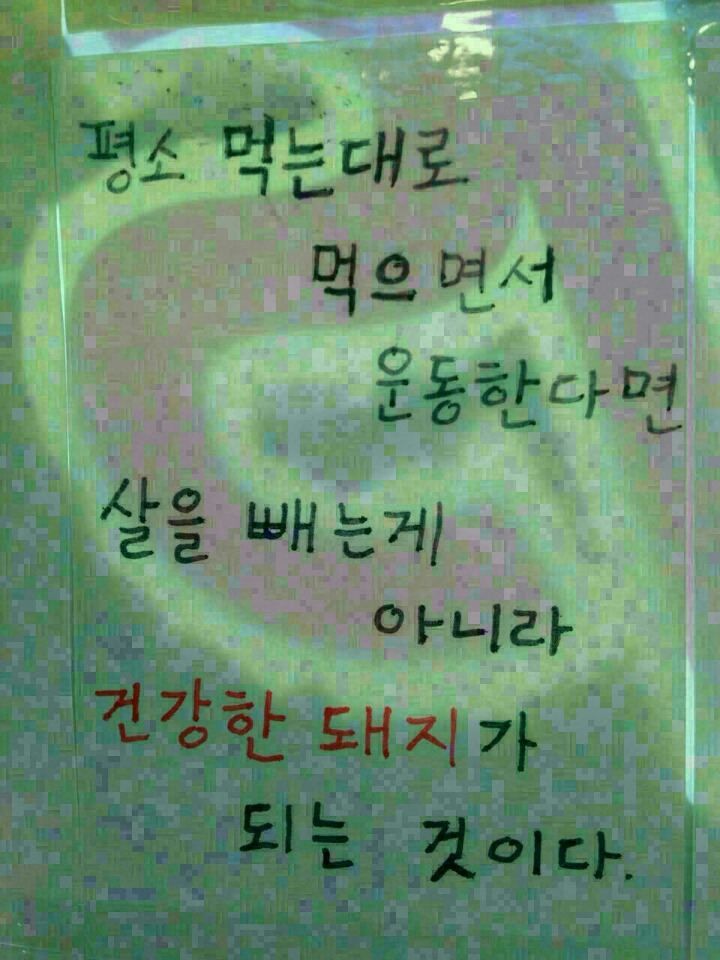 평소 먹는대로
먹으면서
운동한다면
살을 빼는게
아니라
건강한 돼지가
되는 것이다.